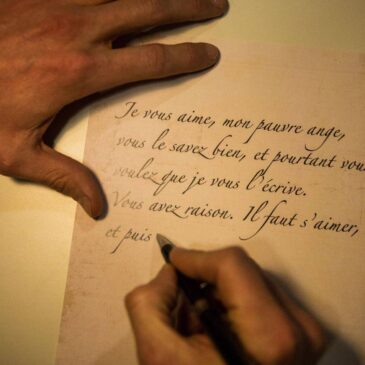 Je vous aime, mon pauvre ange,
vous le savez bien, et pourtant vous
voulez que je vous l'écrive.
Vous avez raison. Il faut s'aimer,
et puis